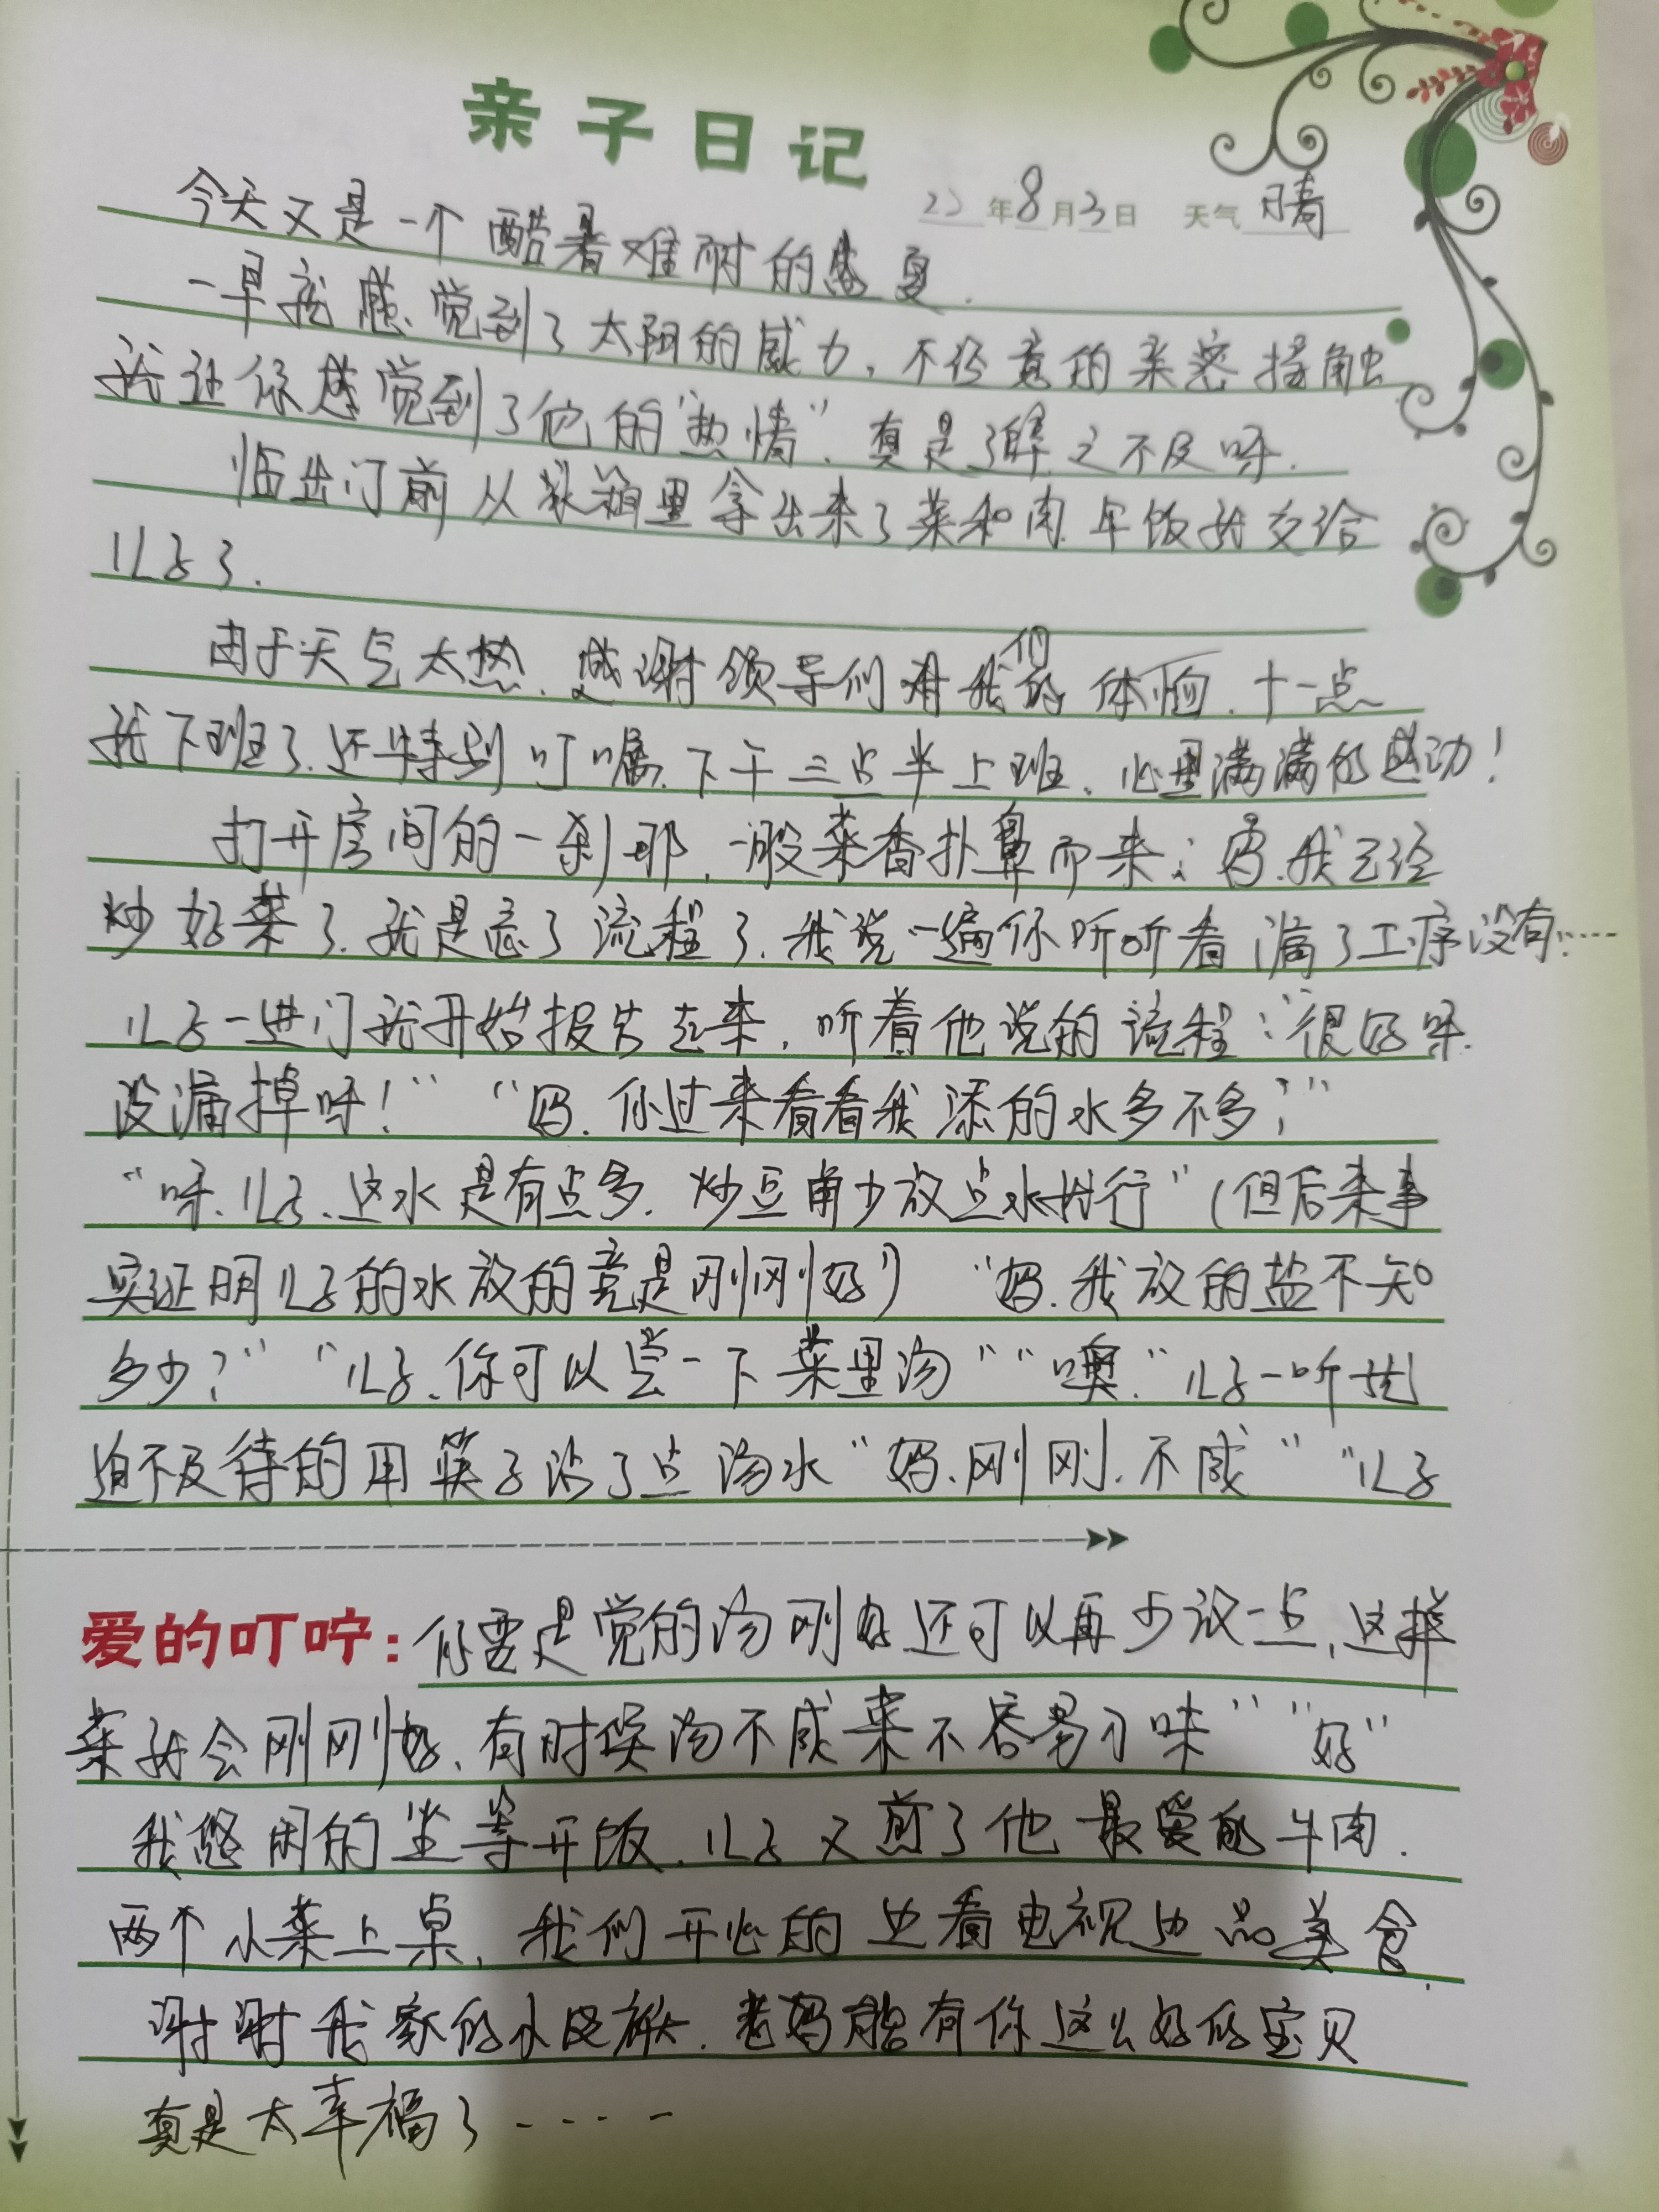 亲子日记
22年8月3日 天气 晴
今天又是一个酷暑难耐的盛夏.
一早就感觉到了太阳的威力,不经意的亲密接触
就让你感觉到了他的"热情",真是避之不及呀.
临出门前从冰箱里拿出来了菜和肉.午饭就交给
儿子了.
由于天气太热,感谢领导们对我们的体恤.十一点
就下班了.还特别叮嘱.下午三点半上班.心里满满的感动!
打开房间的一刹那,一股菜香扑鼻而来:妈.我已经
炒好菜了.就是忘了流程了.我说一遍你听听看漏了工序没有:……
儿子一进门就开始报告起来,听着他说的流程:"很好呀.
没漏掉呀!""妈.你过来看看我添的水多不多?"
"呀、儿子、这水是有点多.炒豆角少放点水就行"(但后来事
实证明儿子的水放的竟是刚刚好)"妈.我放的盐不知
多少?""儿子、你可以尝一下菜里汤""噢."儿子一听就
迫不及待的用筷子沾了点汤水"妈、刚刚.不咸""儿子
爱的叮咛:你要是觉的汤刚好还可以再少放一点,这样
菜就会刚刚好、有时候汤不咸菜不容易入味""好"
我悠闲的坐等开饭.儿子又煎了他最爱的牛肉.
两个小菜上桌,我们开心的边看电视边品美食.
谢谢我家的小皮猴.老妈能有你这么好的宝贝
真是太幸福了·····